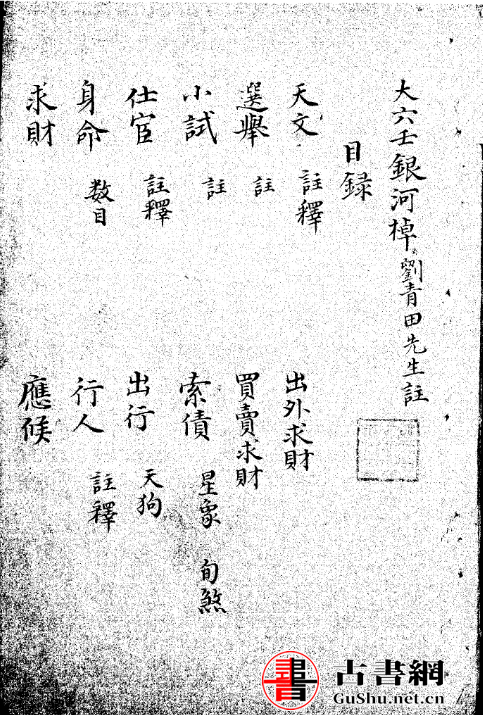 大六壬銀河棹 劉青田先生註
目録
天文 註釋
選舉 註
小試 註
仕宦 註釋
身命 数目
求財
出外求財
買賣求財
索債 星象 旬煞
出行 天狗
行人 註釋
應候
書 古書網
GuShu.net.cn